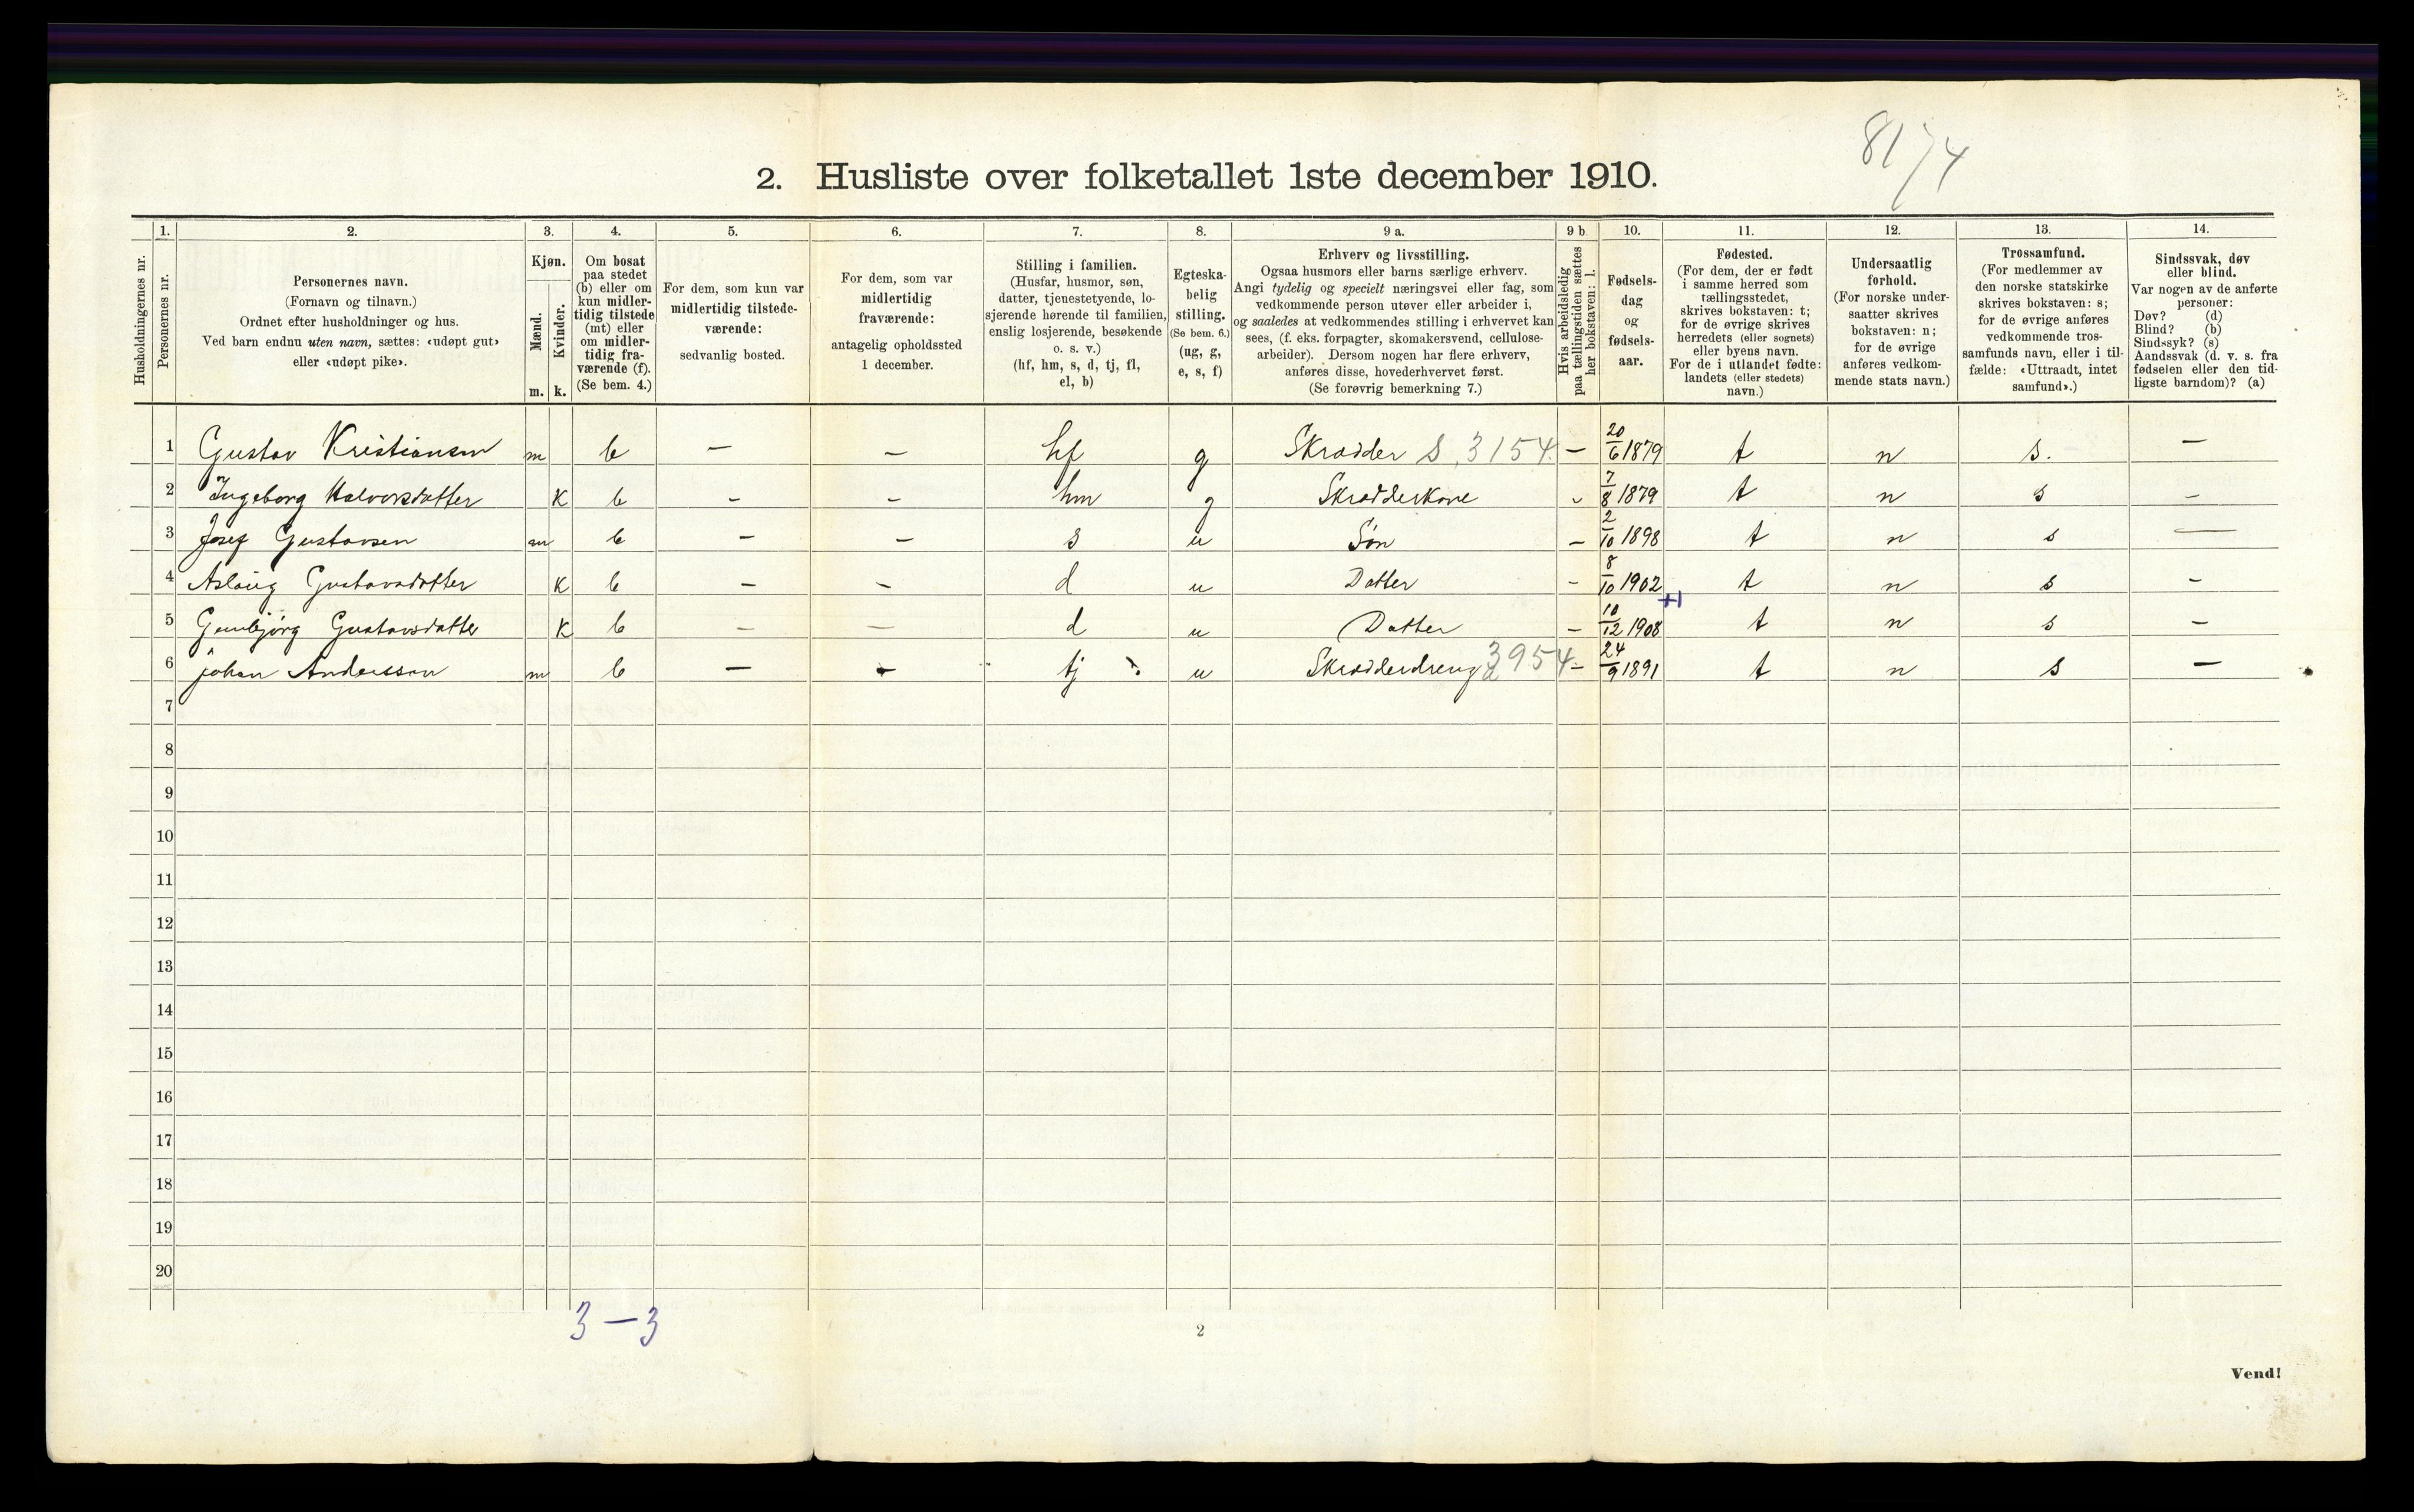 8174
2. Husliste over folketallet 1ste december 1910.
Husholdningernes nr.
1.
Personernes nr.
2.
Personernes navn.
(Fornavn og tilnavn.)
Ordnet efter husholdninger og hus.
Ved barn endnu uten navn, sættes: «udøpt gut»
eller «udøpt pike».
3.
Kjøn.
Mænd.
m.
Kvinder.
k.
4.
Om bosat
paa stedet
(b) eller om
kun midler-
tidig tilstede
(mt) eller
om midler-
tidig fra-
værende (f).
(Se bem. 4.)
5.
For dem, som kun var
midlertidig tilstede-
værende:
sedvanlig bosted.
6.
For dem, som var
midlertidig
fraværende:
antagelig opholdssted
1 december.
7.
Stilling i familien.
(Husfar, husmor, søn,
datter, tjenestetyende, lo-
sjerende hørende til familien,
enslig losjerende, besøkende
o. s. v.)
(hf, hm, s, d, tj, fl,
el, b)
8.
Egteska-
belig
stilling.
(Se bem. 6.)
(ug, g,
e, s, f)
9 a.
Erhverv og livsstilling.
Ogsaa husmors eller barns særlige erhverv.
Angi tydelig og specielt næringsvei eller fag, som
vedkommende person utøver eller arbeider i,
og saaledes at vedkommendes stilling i erhvervet kan
sees, (f. eks. forpagter, skomakersvend, cellulose-
arbeider). Dersom nogen har flere erhverv,
anføres disse, hovederhvervet først.
(Se forøvrig bemerkning 7.)
9 b
Hvis arbeidsledig
paa tællingstiden sættes
her bokstaven: l.
10.
Fødsels-
dag
og
fødsels-
aar.
11.
Fødested.
(For dem, der er født
i samme herred som
tællingsstedet,
skrives bokstaven: t;
for de øvrige skrives
herredets (eller sognets)
eller byens navn.
For de i utlandet fødte:
landets (eller stedets)
navn.)
12.
Undersaatlig
forhold.
(For norske under-
saatter skrives
bokstaven: n;
for de øvrige
anføres vedkom-
mende stats navn.)
13.
Trossamfund.
(For medlemmer av
den norske statskirke
skrives bokstaven: s;
for de øvrige anføres
vedkommende tros-
samfunds navn, eller i til-
fælde: «Uttraadt, intet
samfund».)
14.
Sindssvak, døv
eller blind.
Var nogen av de anførte
personer:
Døv? (d)
Blind? (b)
Sindssyk? (s)
Aandssvak (d. v. s. fra
fødselen eller den tid-
ligste barndom)? (a)
1 Gustav Kristiansen m b — — hf g Skrædder S. 3154. — 20/6 1879 t n s. —
2 Ingeborg Halvorsdatter K b — — hm g Skrædderkone - 7/8 1879 t n s —
3 Josef Gustavsen m b — — s u Søn — 2/10 1898 t n s —
4 Aslaug Gustavsdatter K b — — d u Datter — 8/10 1902 t n s —
5 Gunbjørg Gustavsdatter K b — — d u Datter — 10/12 1908 t n s —
6 Johan Anderssen m b — — tj u Skrædderdreng 3954 — 24/9 1891 t n s —
7
8
9
10
11
12
13
14
15
16
17
18
19
20
3 — 3
2
Vend!